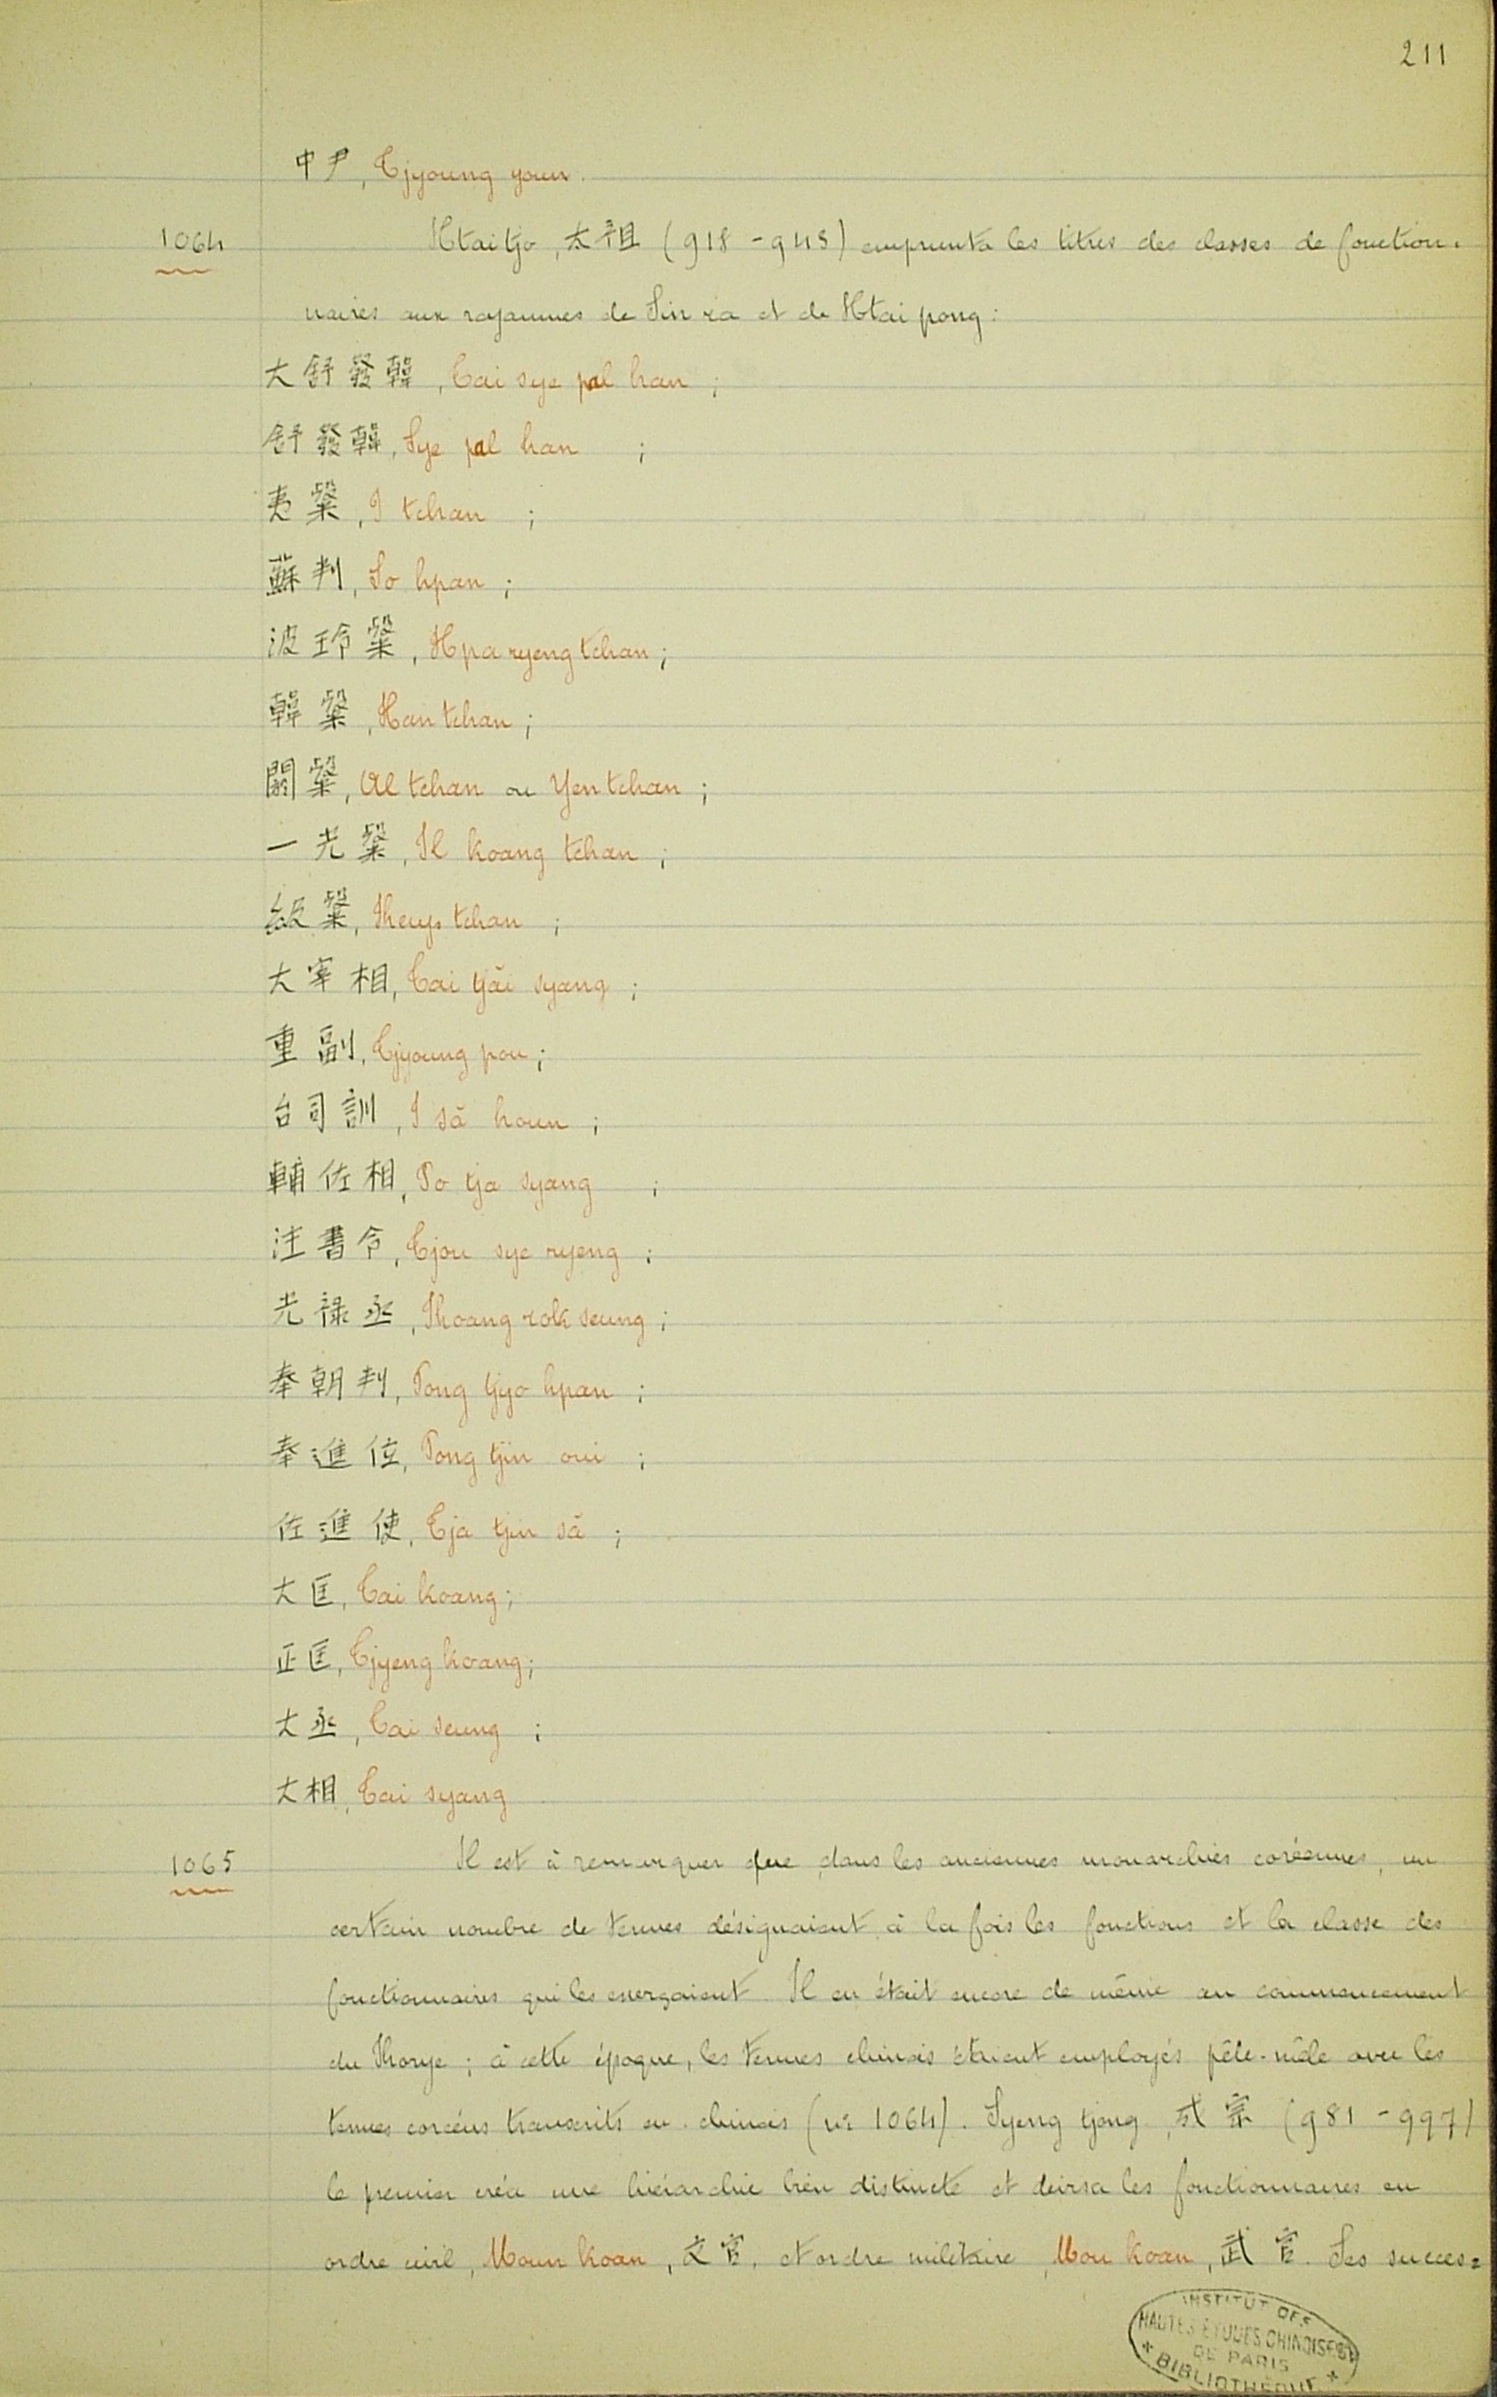 211
中尹, Tjyoung youn.
1064
Htai tjo, 太祖 (918-943) emprunta les titres des classes de fonction-
naires aux royaumes de Sin ra et de Htai pong:
大舒發韓, Tai sye pal han;
舒發韓, Sye pal han;
夷粲, I tchan;
蘇判, So hpan;
波珍粲, Hpa ryeng tchan;
韓粲, Han tchan;
閼粲, Al tchan ou Yen tchan;
一吉粲, Il koang tchan;
級粲, Keup tchan;
大宰相, Tai tjăi syang;
重副, Tjyoung pou;
台司訓, I să houn;
輔佐相, Po tja syang;
注書令, Tjou sye ryeng;
光祿丞, Koang rok seung;
奉朝判, Pong tjyo hpan;
奉進位, Pong tjin oui;
佐進使, Tja tjin să;
大匡, Tai koang;
正匡, Tjyeng koang;
大丞, Tai seung;
大相, Tai syang
1065
Il est à remarquer que, dans les anciennes monarchies coréennes, un
certain nombre de termes désignaient à la fois les fonctions et la classe des
fonctionnaires qui les exerçaient. Il en était encore de même au commencement
du Korye; à cette époque, les termes chinois étaient employés pêle-mêle avec les
termes coréens transcrits en chinois (no 1064). Syeng tjong, 成宗 (981-997)
le premier créa une hiérarchie bien distincte et divisa les fonctionnaires en
ordre civil, Moun koan, 文官, et ordre militaire, Mou koan, 武官. Ses succes=
INSTITUT DES
HAUTES ETUDES CHINOISES
DE PARIS
* BIBLIOTHÈQUE *